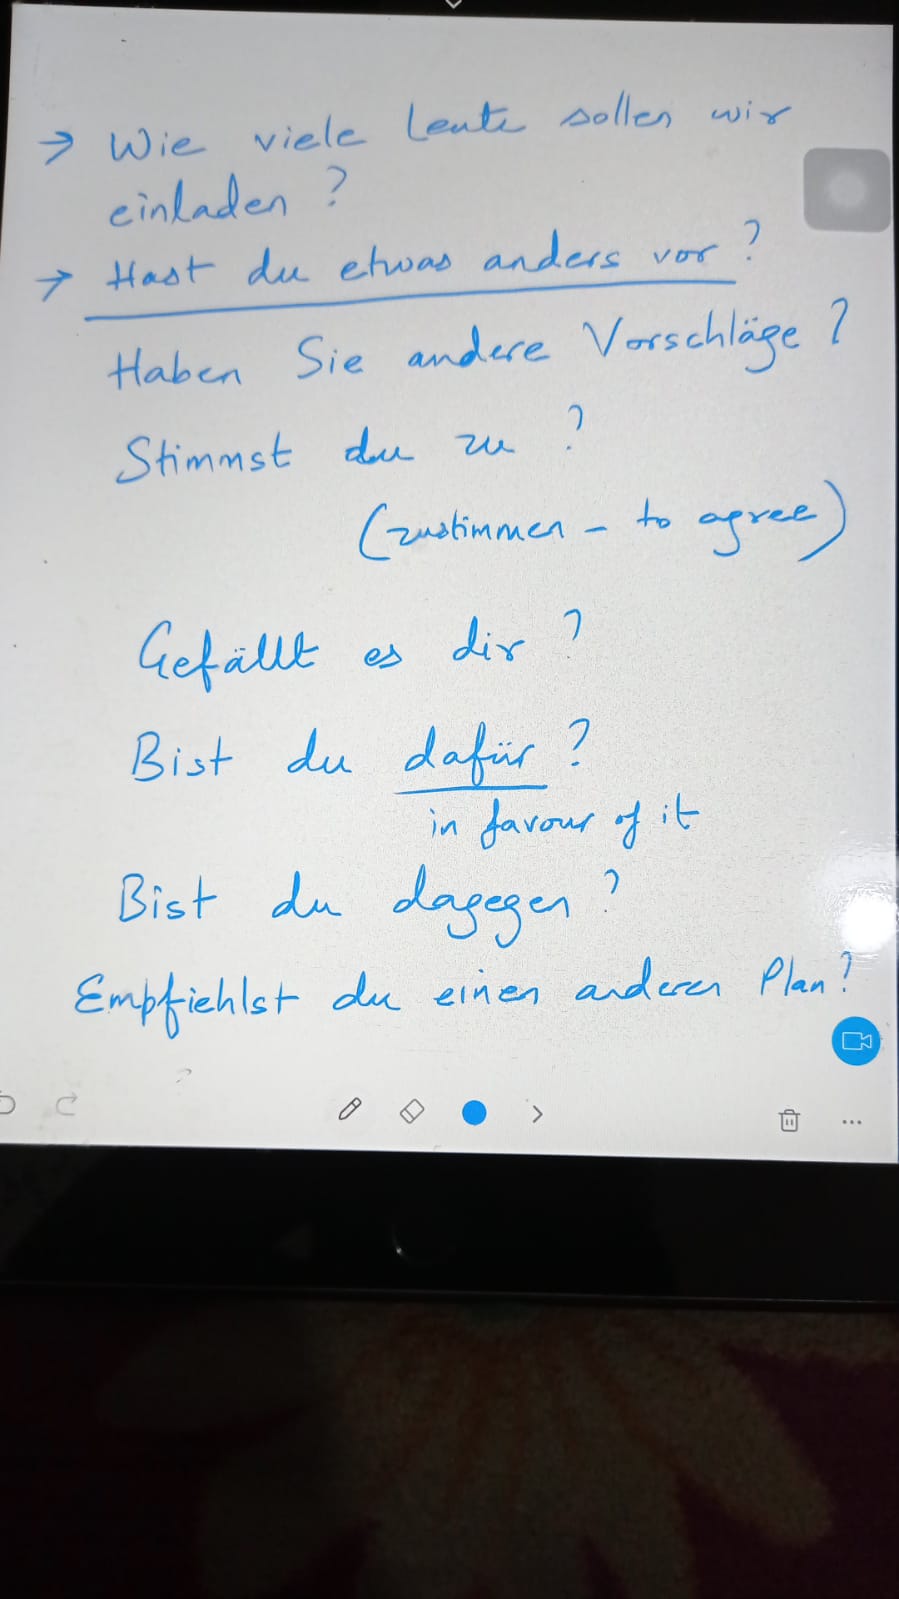 → Wie viele Leute sollen wir
einladen ?
→ Hast du etwas anders vor ?
Haben Sie andere Vorschläge ?
Stimmst du zu ?
(zustimmen - to agree)
Gefällt es dir ?
Bist du dafür ?
in favour of it
Bist du dagegen ?
Empfiehlst du einen anderen Plan ?